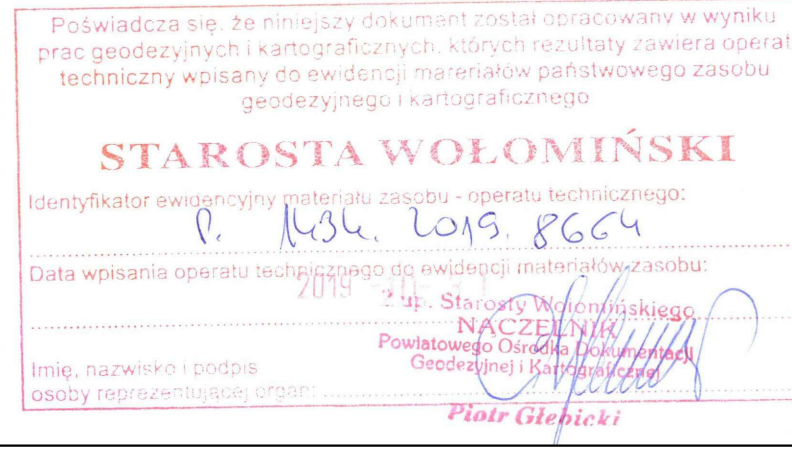 Poświadcza się, że niniejszy dokument został opracowany w wyniku
prac geodezyjnych i kartograficznych, których rezultaty zawiera operat
techniczny wpisany do ewidencji mareriałów państwowego zasobu
geodezyjnego i kartograficznego
STAROSTA WOŁOMIŃSKI
Identyfikator ewidencyjny materiału zasobu - operatu technicznego:
P. 1434. 2019. 8664
Data wpisania operatu technicznego do ewidencji materiałów zasobu:
2019
z up. Starosty Wołomińskiego
NACZELNIK
Powiatowego Ośrodka Dokumentacji
Geodezyjnej i Kartograficznej
Imię, nazwisko i podpis
osoby reprezentującej organ:
Piotr Głębicki